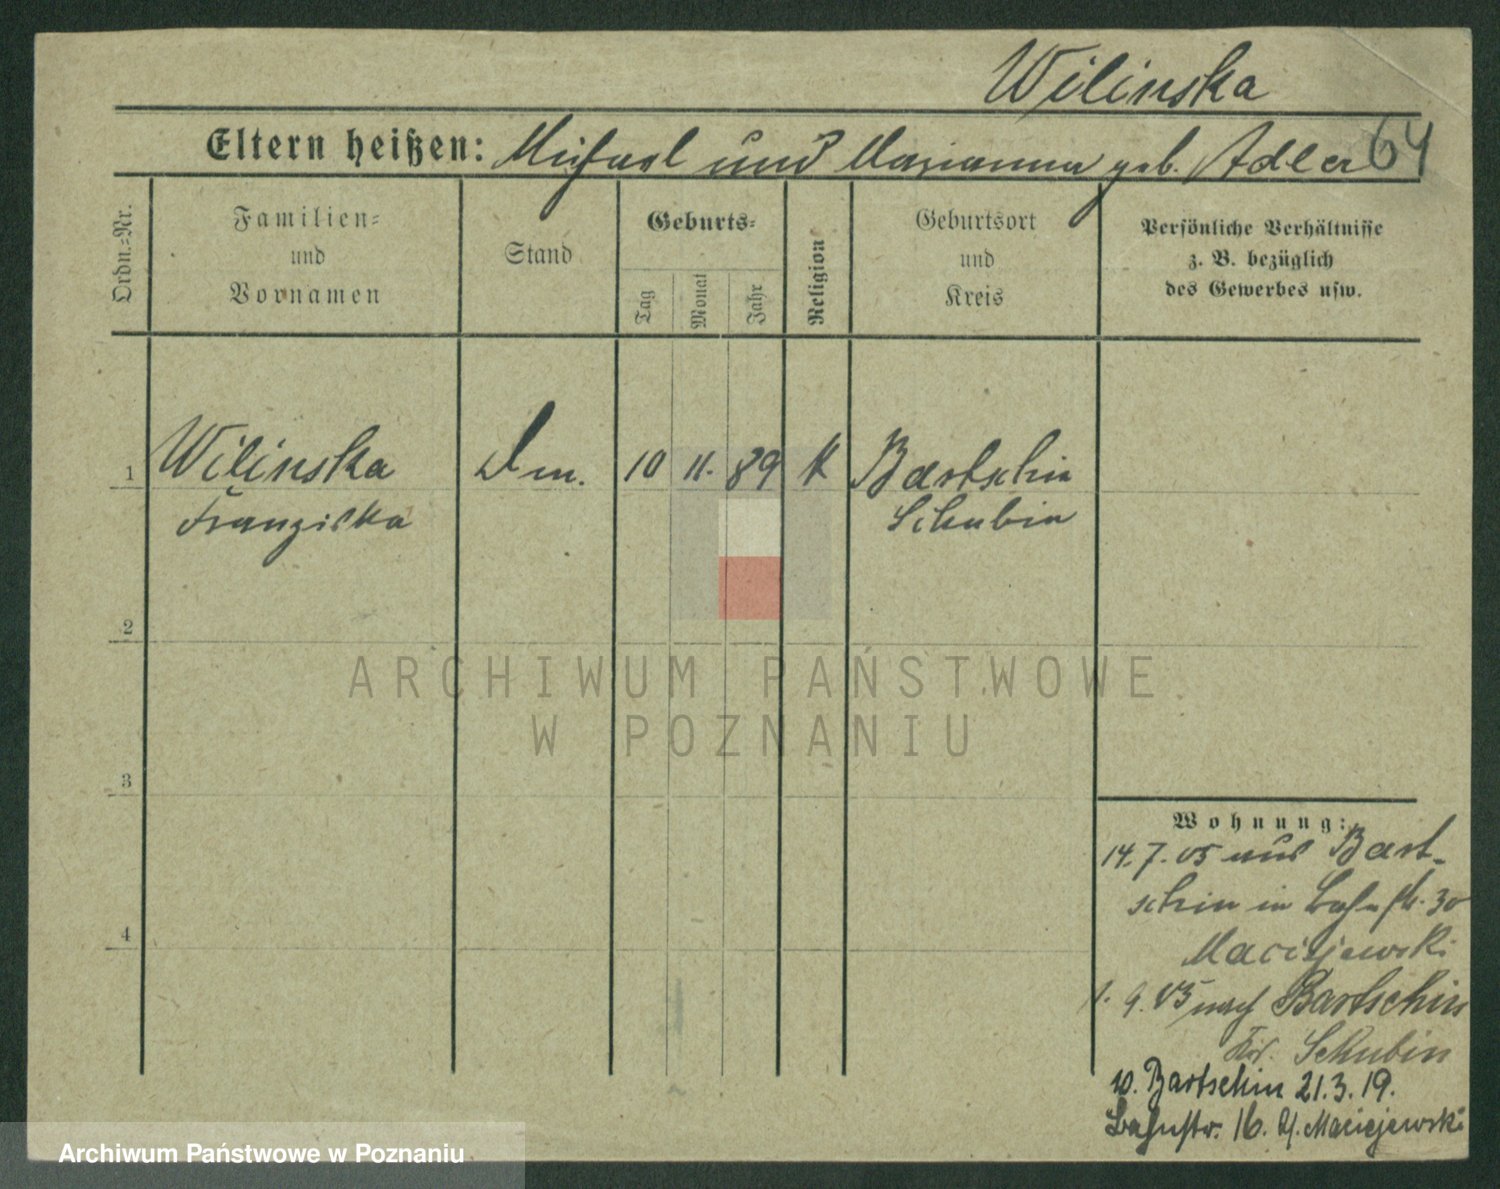 Wilinska
Eltern heißen: Michael und Marianna geb. Adler 64
Ordn.=Nr.
Familien=
und
Vornamen
Stand
Geburts=
Tag
Monat
Jahr
Religion
Geburtsort
und
Kreis
Persönliche Verhältnisse
z. B. bezüglich
des Gewerbes usw.
1 Wilinska Dm. 10 11. 89 K Bartschin
Franziska Schubin
2
3
4
Wohnung:
14. 7. 05 aus Bart-
schin in Bahnstr. 30
Maciejewski
1. 9. 05 nach Bartschin
Kr. Schubin
v. Bartschin 21. 3. 19.
Bahnstr. 16. Maciejewski
ARCHIWUM PAŃSTWOWE
W POZNANIU
Archiwum Państwowe w Poznaniu